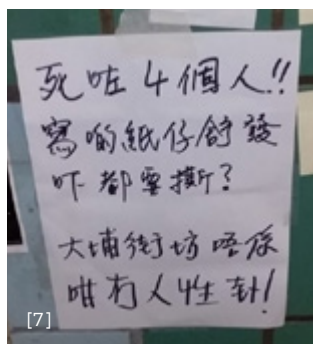 死咗4個人!!
寫啲紙仔舒發
吓都要撕?
大埔街坊唔係
咁冇人性化!
[7]